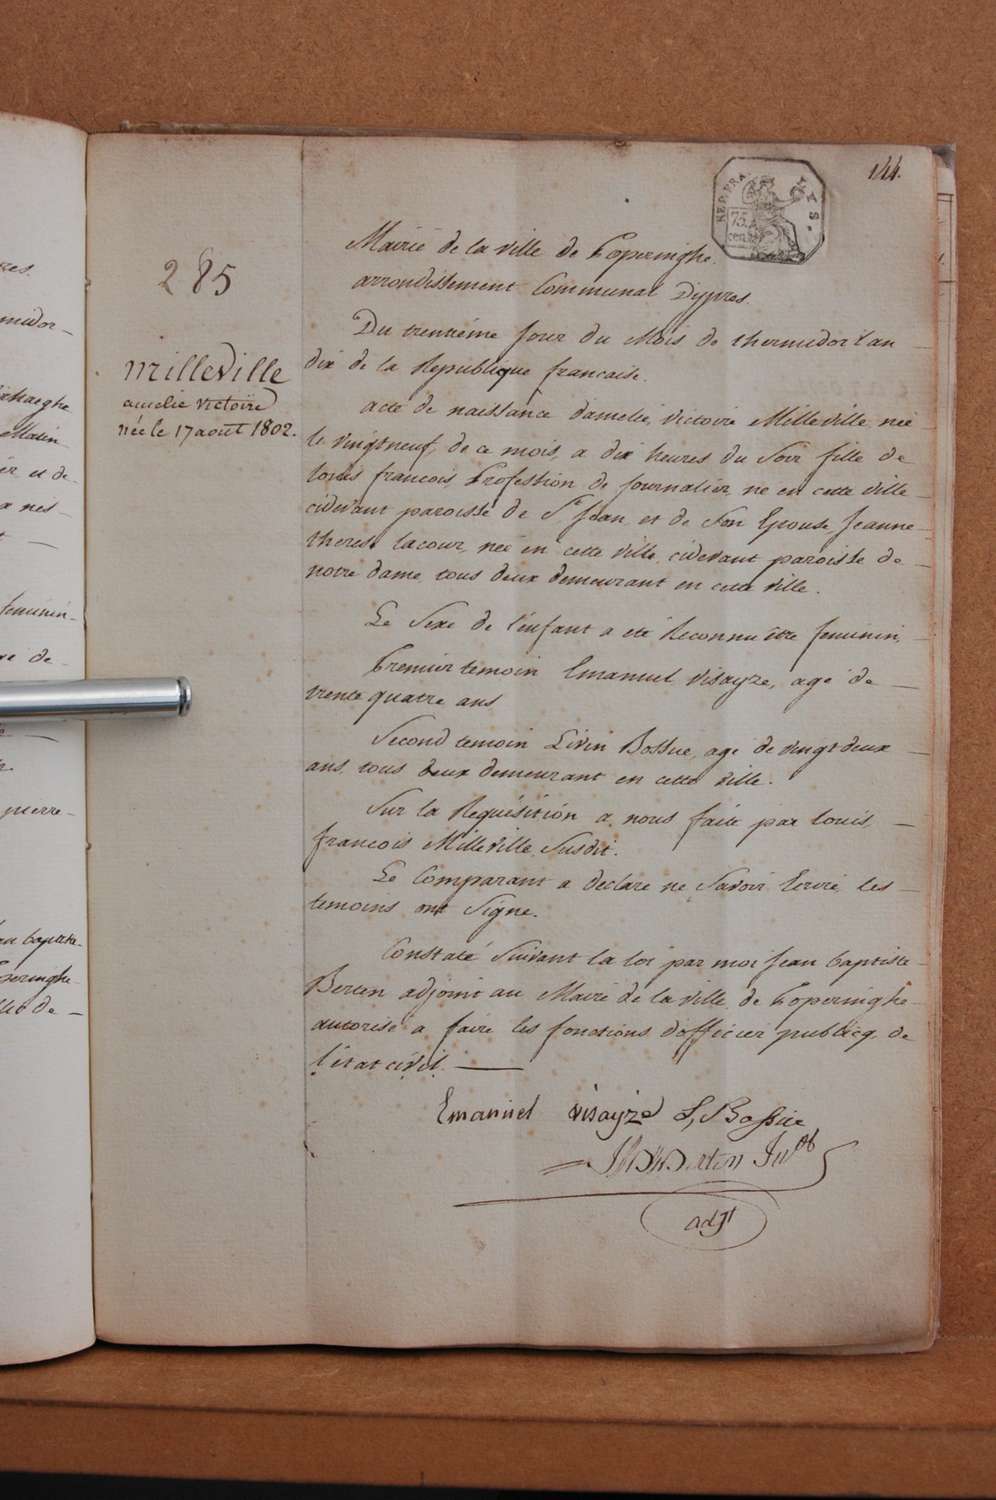 144.
REP. FRA.
75
cent
LYS.
285
Milleville
amelie victoire
née le 17 aout 1802.
Mairie de la ville de Poperinghe.
arrondissement Communal D'ypres
Du trentième jour du Mois de thermidor l'an
dix de la Republique francaise.
acte de naissance d'amelie, victoire Milleville, née
le vingtneuf, de ce mois, a dix heures du Soir fille de
louis francois Profession de journalier, né en cette ville
cidevant paroisse de St. Jean, et de Son Epouse, Jeanne
therese lacour, née en cette ville, cidevant paroisse de
notre dame, tous deux demeurant en cette ville.
Le Sexe de l'enfant a eté Reconnu être feminin,
Premier temoin Emanuel visayze, agé de
trente quatre ans
Second temoin Livin Bossue, age de vingt deux
ans, tous deux demeurant en cette ville.
Sur la Requisition a nous faite par louis,
francois Milleville Susdit.
Le Comparant a declare ne Savoir Ecrire, les
temoins ont Signe.
Constaté Suivant la loi par moi Jean baptiste
Berten adjoint au Maire de la ville de Poperinghe
autorisé a faire les fonctions d'officier publicq, de
l'état civil.
Emanuel visayze L, Bossue
Berten
adjt